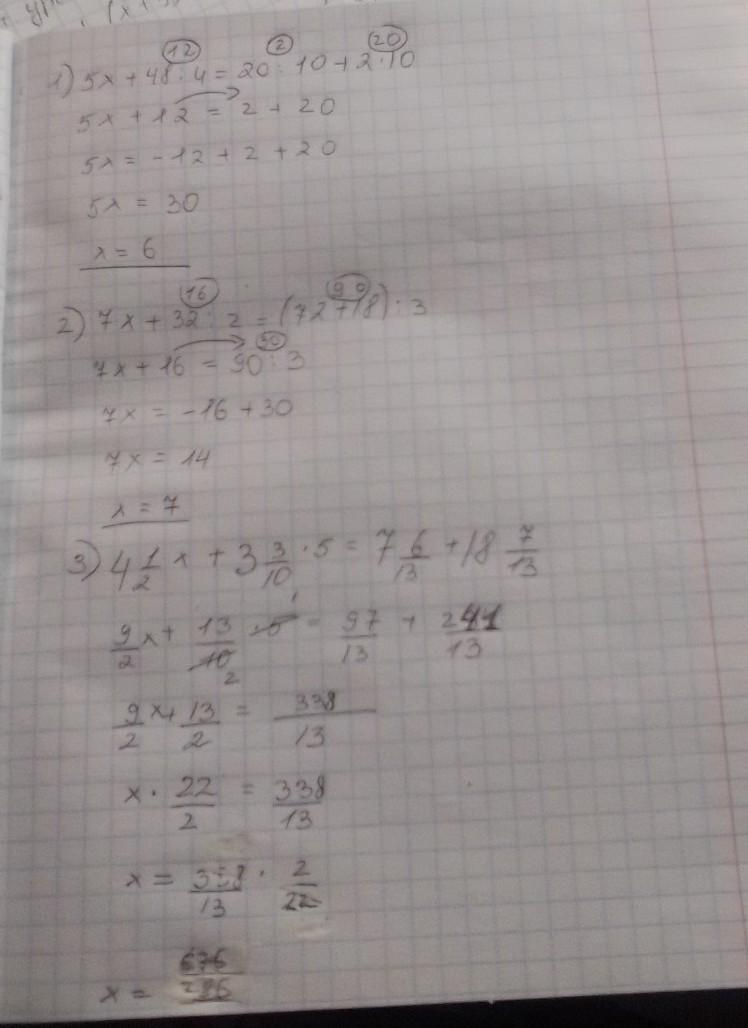 12 2 20
1) 5x + 48 : 4 = 20 : 10 + 2 · 10
5x + 12 = 2 + 20
5x = -12 + 2 + 20
5x = 30
x = 6
16 90
2) 7x + 32 : 2 = (72 + 18) : 3
30
7x + 16 = 90 : 3
7x = -16 + 30
7x = 14
x = 7
3) 4 1/2 x + 3 3/10 · 5 = 7 6/13 + 18 7/13
1
9/2 x + 13/10 · 5 = 97/13 + 241/13
2
9/2 x + 13/2 = 338/13
x · 22/2 = 338/13
x = 338/13 · 2/22
x = 676/286